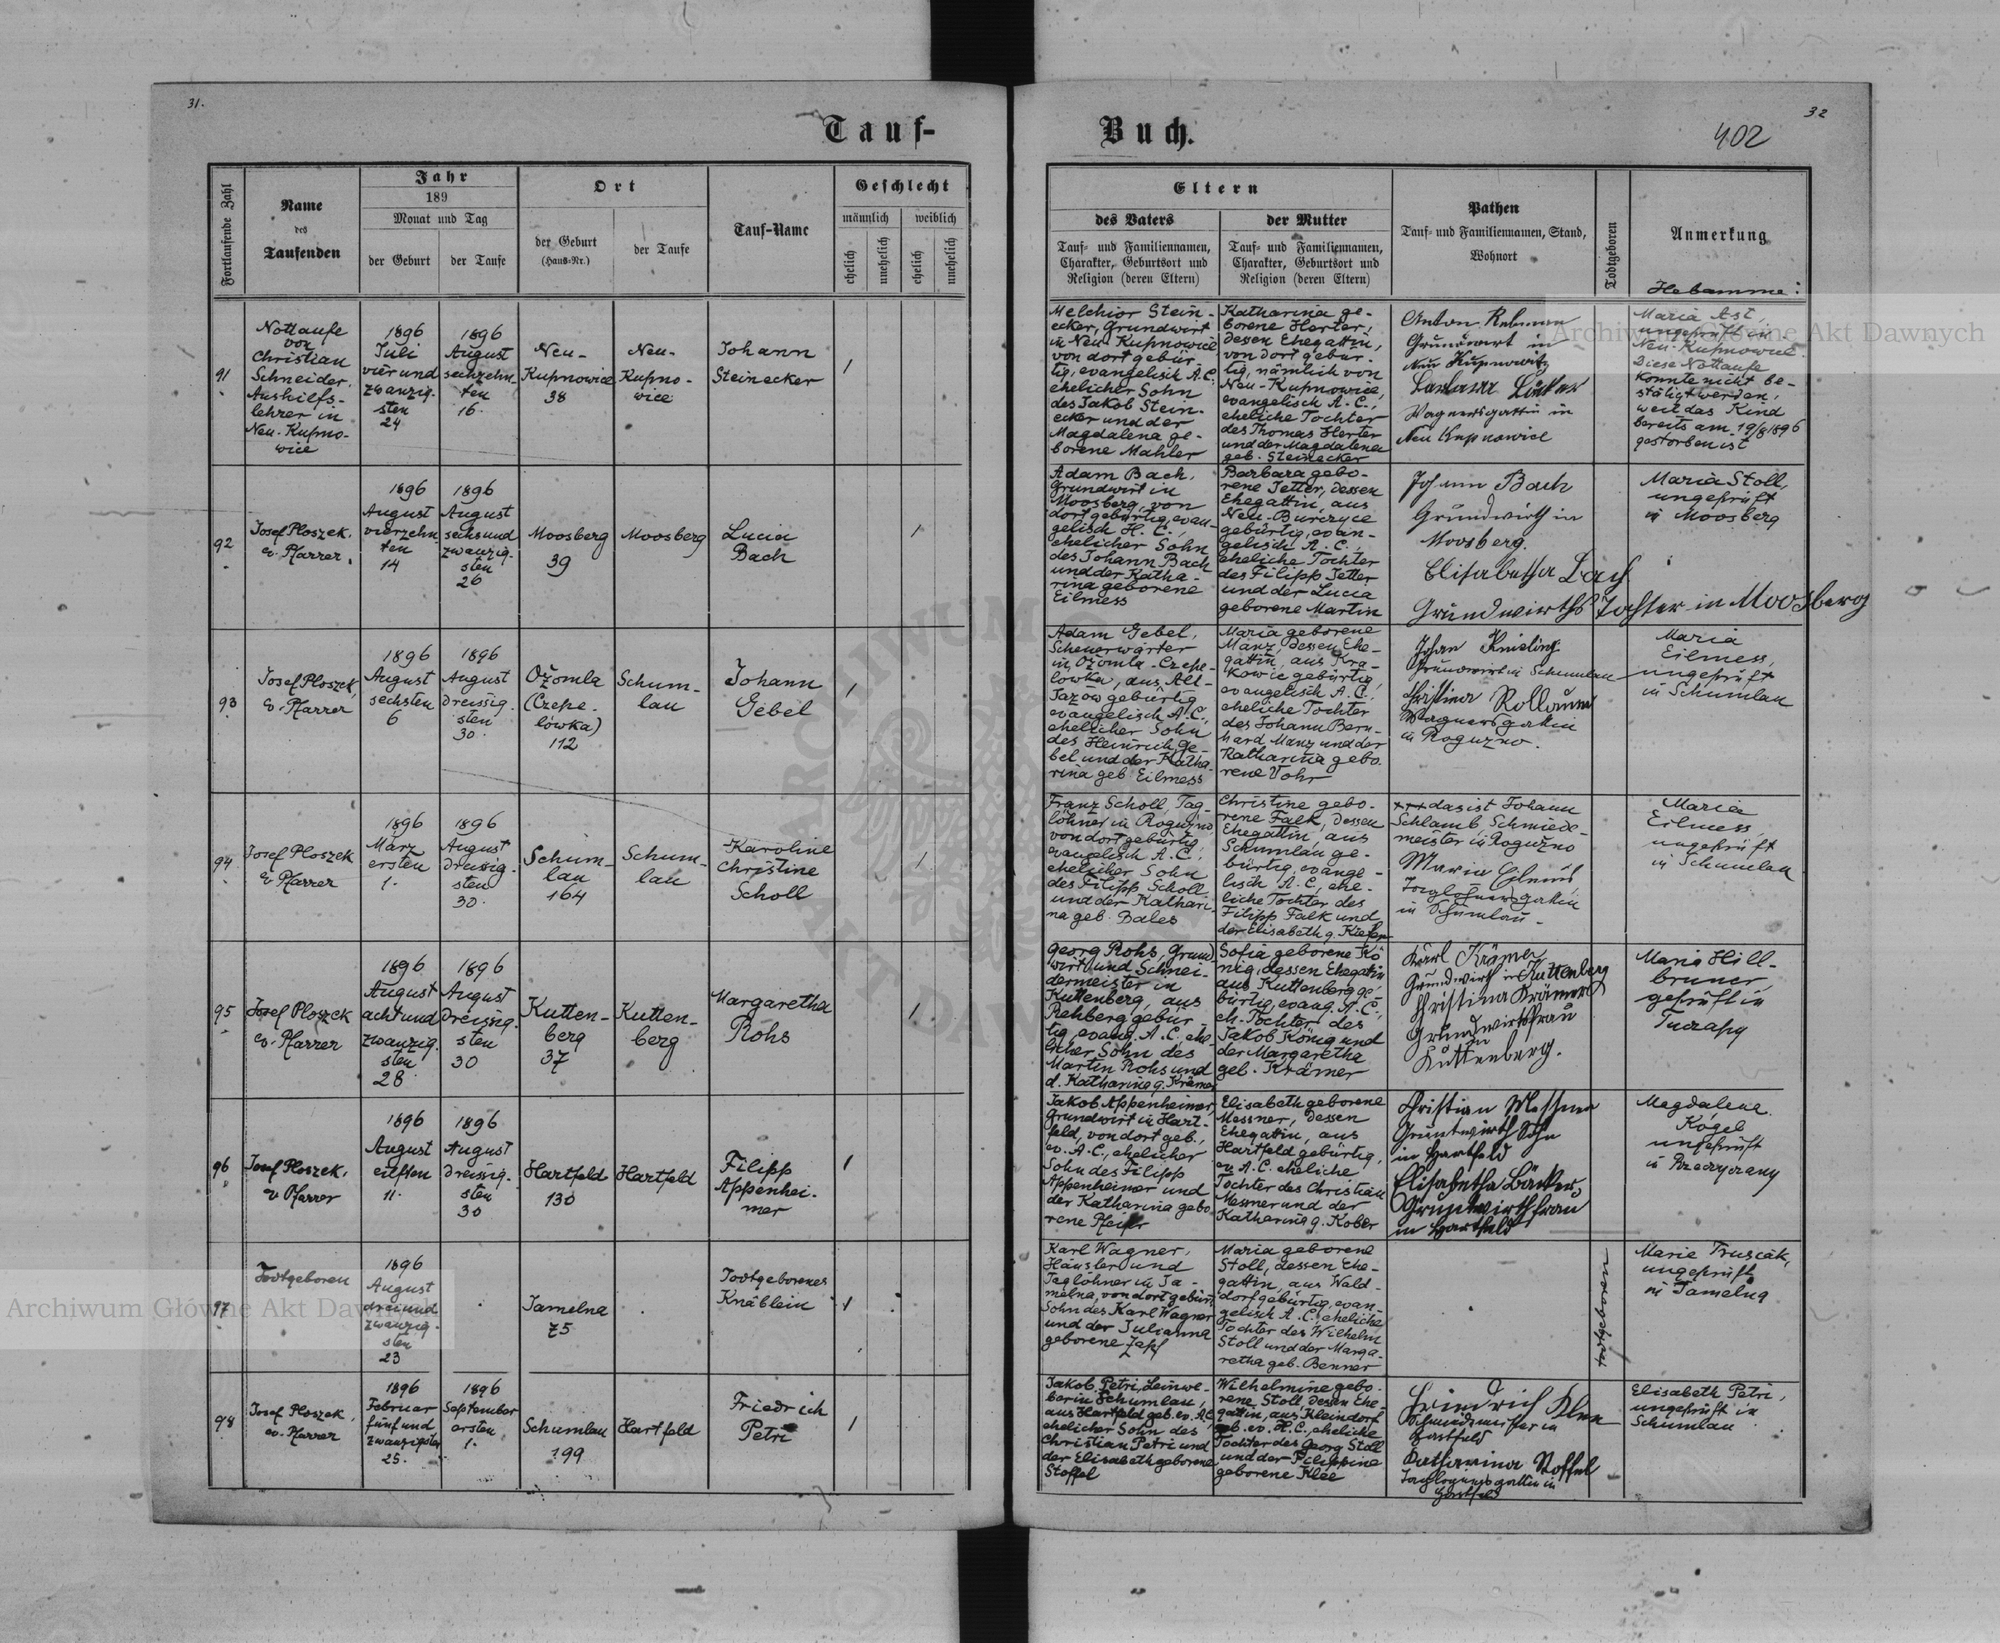 31.
32
Tauf-
Buch.
402
Fortlaufende Zahl
Name
des
Taufenden
Jahr
189
Monat und Tag
der Geburt
der Taufe
Ort
der Geburt
(Haus-Nr.)
der Taufe
Tauf-Name
Geschlecht
männlich
weiblich
ehelich
unehelich
ehelich
unehelich
Eltern
des Vaters
der Mutter
Tauf- und Familiennamen,
Charakter, Geburtsort und
Religion (deren Eltern)
Tauf- und Familiennamen,
Charakter, Geburtsort und
Religion (deren Eltern)
Pathen
Tauf- und Familiennamen, Stand,
Wohnort
Todtgeboren
Anmerkung
Hebamme:
91
Nottaufe
von
Christian
Schneider,
Aushilfs-
lehrer in
Neu-Kupno-
wice
1896
Juli
vier und
zwanzig-
sten
24
1896
August
sechzehn-
ten
16.
Neu-
Kupnowice
38
Neu-
Kupno-
wice
Johann
Steinecker
1
Melchior Stein-
ecker, Grundwirt
in Neu-Kupnowice
von dort gebür-
tig, evangelisch A.C.,
ehelicher Sohn
des Jakob Stein-
ecker und der
Magdalena ge-
borene Mahler
Katharina ge-
borene Herter,
dessen Ehegattin,
von dort gebür-
tig, nämlich von
Neu-Kupnowice,
evangelisch A.C.,
eheliche Tochter
des Thomas Herter
und der Magdalena
geb. Steinecker
Anton
Grundwirt in
Neu Kupnowitz
Wagnersgattin in
Neu Kupnowice
Maria Ast,
ungeprüft in
Neu-Kupnowice.
Diese Nottaufe
konnte nicht be-
stätigt werden,
weil das Kind
bereits am 19/8 1896
gestorben ist
92
Josef Ploszek,
ev. Pfarrer.
1896
August
vierzehn-
ten
14
1896
August
sechs und
zwanzig-
sten
26
Moosberg
39
Moosberg
Lucia
Bach
1
Adam Bach,
Grundwirt in
Moosberg, von
dort gebürtig, evan-
gelisch H.C.,
ehelicher Sohn
des Johann Bach
und der Katha-
rina geborene
Eilmess
Barbara gebo-
rene Jetter, dessen
Ehegattin, aus
Neu-Burczyce
gebürtig, evan-
gelisch A.C.,
eheliche Tochter
des Filipp Jetter
und der Lucia
geborene Martin
Johann Bach
Grundwirth in
Moosberg.
Elisabetha Bach
Grundwirths Tochter in Moosberg
Maria Stoll,
ungeprüft
in Moosberg
93
Josef Ploszek,
ev. Pfarrer
1896
August
sechsten
6
1896
August
dreissig-
sten
30.
Ożomla
(Czepe-
lówka)
112
Schum-
lau
Johann
Gebel
1
Adam Gebel,
Scheuerwärter
in Ożomla-Czepe-
lowka, aus Alt-
Jazow gebürtig,
evangelisch A.C.,
ehelicher Sohn
des Heinrich Ge-
bel und der Katha-
rina geb. Eilmess
Maria geborene
Manz, dessen Ehe-
gattin, aus Kra-
kowie gebürtig,
evangelisch A.C.,
eheliche Tochter
des Johann Bern-
hard Manz und der
Katharina gebo-
rene Vohr
Johan Knieling
Grundwirt in Schumlau
Christina
Wagnersgattin
in Roguzno.
Maria
Eilmess,
ungeprüft
in Schumlau
94
Josef Ploszek
ev. Pfarrer
1896
März
ersten
1.
1896
August
dreissig-
sten
30.
Schum-
lau
164
Schum-
lau
Karoline
Christine
Scholl
1
Franz Scholl, Tag-
löhner in Roguzno,
von dort gebürtig,
evangelisch A.C.,
ehelicher Sohn
des Filipp Scholl
und der Kathari-
na geb. Bales
Christine gebo-
rene Falk, dessen
Ehegattin, aus
Schumlau ge-
bürtig, evange-
lisch A.C., ehe-
liche Tochter des
Filipp Falk und
der Elisabeth g. Kiefen
+++ das ist Johann
Schlamb, Schmiede-
meister in Roguzno
Maria
Taglöhnersgattin
in Schumlau.
Maria
Eilmess,
ungeprüft
in Schumlau
95
Josef Ploszek
ev. Pfarrer
1896
August
acht und
zwanzig-
sten
28
1896
August
dreissig-
sten
30
Kutten-
berg
37
Kutten-
berg
Margaretha
Rohs
1
Georg Rohs, Grund-
wirt und Schnei-
dermeister in
Kuttenberg, aus
Rehberg gebür-
tig, evang. A.C., ehe-
licher Sohn des
Martin Rohs und
d. Katharina g. Krämer
Sofia geborene Kö-
nig, dessen Ehegattin
aus Kuttenberg ge-
bürtig, evang. A.C.,
eh. Tochter des
Jakob König und
der Margaretha
geb. Krämer
Karl Krämer
Grundwirth in Kuttenberg
Christina Krämer
Grundwirtsfrau
in
Kuttenberg.
Maria Hill-
bruner,
geprüft in
96
Josef Ploszek,
ev. Pfarrer
1896
August
eilften
11.
1896
August
dreissig-
sten
30
Hartfeld
130
Hartfeld
Filipp
Appenhei-
mer
1
Jakob Appenheimer,
Grundwirt in Hart-
feld, von dort geb.,
ev. A.C., ehelicher
Sohn des Filipp
Appenheimer und
der Katharina gebo-
rene Pfeifer
Elisabeth geborene
Messner, dessen
Ehegattin, aus
Hartfeld gebürtig,
ev. A.C. eheliche
Tochter des Christian
Messner und der
Katharina g. Kober
Christian Messner
Gruntwirth Sohn
in Hartfeld
Elisabetha Bäcker,
Gruntwirthfrau
in Hartfeld
Magdalene
Kogel
ungeprüft
97
Todtgeboren
1896
August
drei und
zwanzig-
sten
23
Jamelna
75
Todtgeborenes
Knäblein
1
Karl Wagner,
Häusler und
Taglöhner in Ja-
melna, von dort gebürt.
Sohn des Karl Wagner
und der Julianna
geborene Zapf
Maria geborene
Stoll, dessen Ehe-
gattin, aus Wald-
dorf gebürtig, evan-
gelisch A.C., eheliche
Tochter des Wilhelm
Stoll und der Marga-
retha geb. Benner
todtgeboren
Marie Truscak,
ungeprüft
in Jamelna
98
Josef Ploszek,
ev. Pfarrer
1896
Februar
fünf und
zwanzigsten
25.
1896
September
ersten
1.
Schumlau
199
Hartfeld
Friedrich
Petri
1
Jakob Petri, Leinwe-
ber in Schumlau,
aus Hartfeld geb. ev. A.C.
ehelicher Sohn des
Christian Petri und
der Elisabeth geborene
Stoffel
Wilhelmine gebo-
rene Stoll, dessen Ehe-
gattin, aus Kleindorf
geb. ev. H.C., eheliche
Tochter des Georg Stoll
und der Filippine
geborene Klee
Friedrich Klee
Schmiedmeister in
Hartfeld
Katharina Stoffel
Taglöhnersgattin in
Hartfeld
Elisabeth Petri,
ungeprüft in
Schumlau
Archiwum Główne Akt Dawnych
Archiwum Główne Akt Dawnych